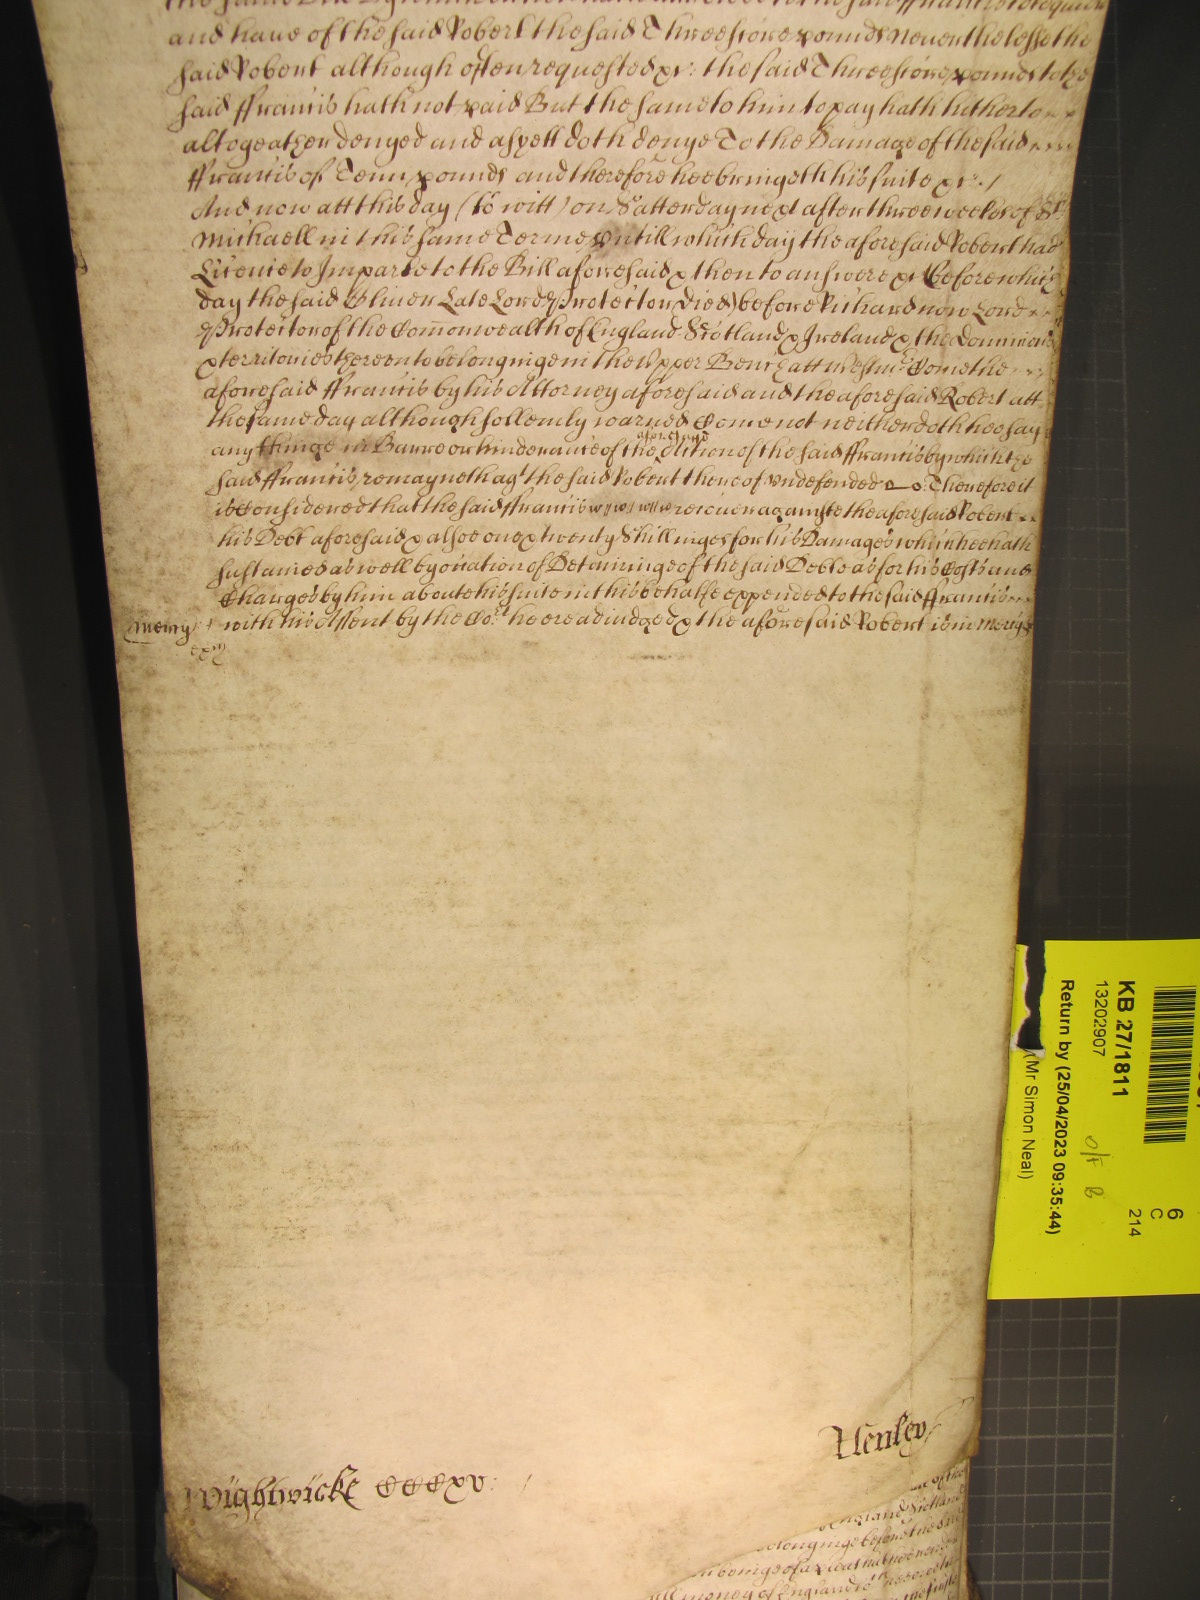 and have of the said Robert the said Threescore pounds Neverthelesse the
said Robert although often requested &c: the said Threescore pounds to the
said ffrancis hath not paid But the same to him to pay hath hitherto
altogeather denyed and as yett doth denye To the Damage of the said
ffrancis of Tenn pounds and therefore hee bringeth his suite &c: /
And now att this day (to witt) on Satterday next after three weekes of St
Michaell in this same Terme untill which day the aforesaid Robert had
Licence to Imparle to the Bill aforesaid & then to answere &c (before which
day the said Oliver Late Lord Protector Died) before Richard now Lord
Protector of the Comonwealth of England Scotland & Ireland & the Dominions
& territories thereunto belonginge in the Upper Bench att Westmr Come the
aforesaid ffrancis by his Attorney aforesaid and the aforesaid Robert att
the same day although sollemly warned Come not neither doth hee say
any thinge in Barre or hinderance of the aforesayd Action of the said ffrancis by which the
said ffrancis remayneth agt the said Robert thereof undefended Therefore it
is Considered that the said ffrancis recover againste the aforesaid Robert
his Debt aforesaid & alsoe one & twenty Shillinges for his Damages which hee hath
sustained as well by occation of Detaininge of the said Debte as for his Costs and
Charges by him aboute his suite in this behalfe expended to the said ffrancis
Mercy with his Assent by the Cort here adiudged & the aforesaid Robert is in Mercy
&c
Henley
Wightwicke CCCxv:
KB 27/1811
13202907
Return by (25/04/2023 09:35:44)
(Mr Simon Neal)
6
C
214
O/F B